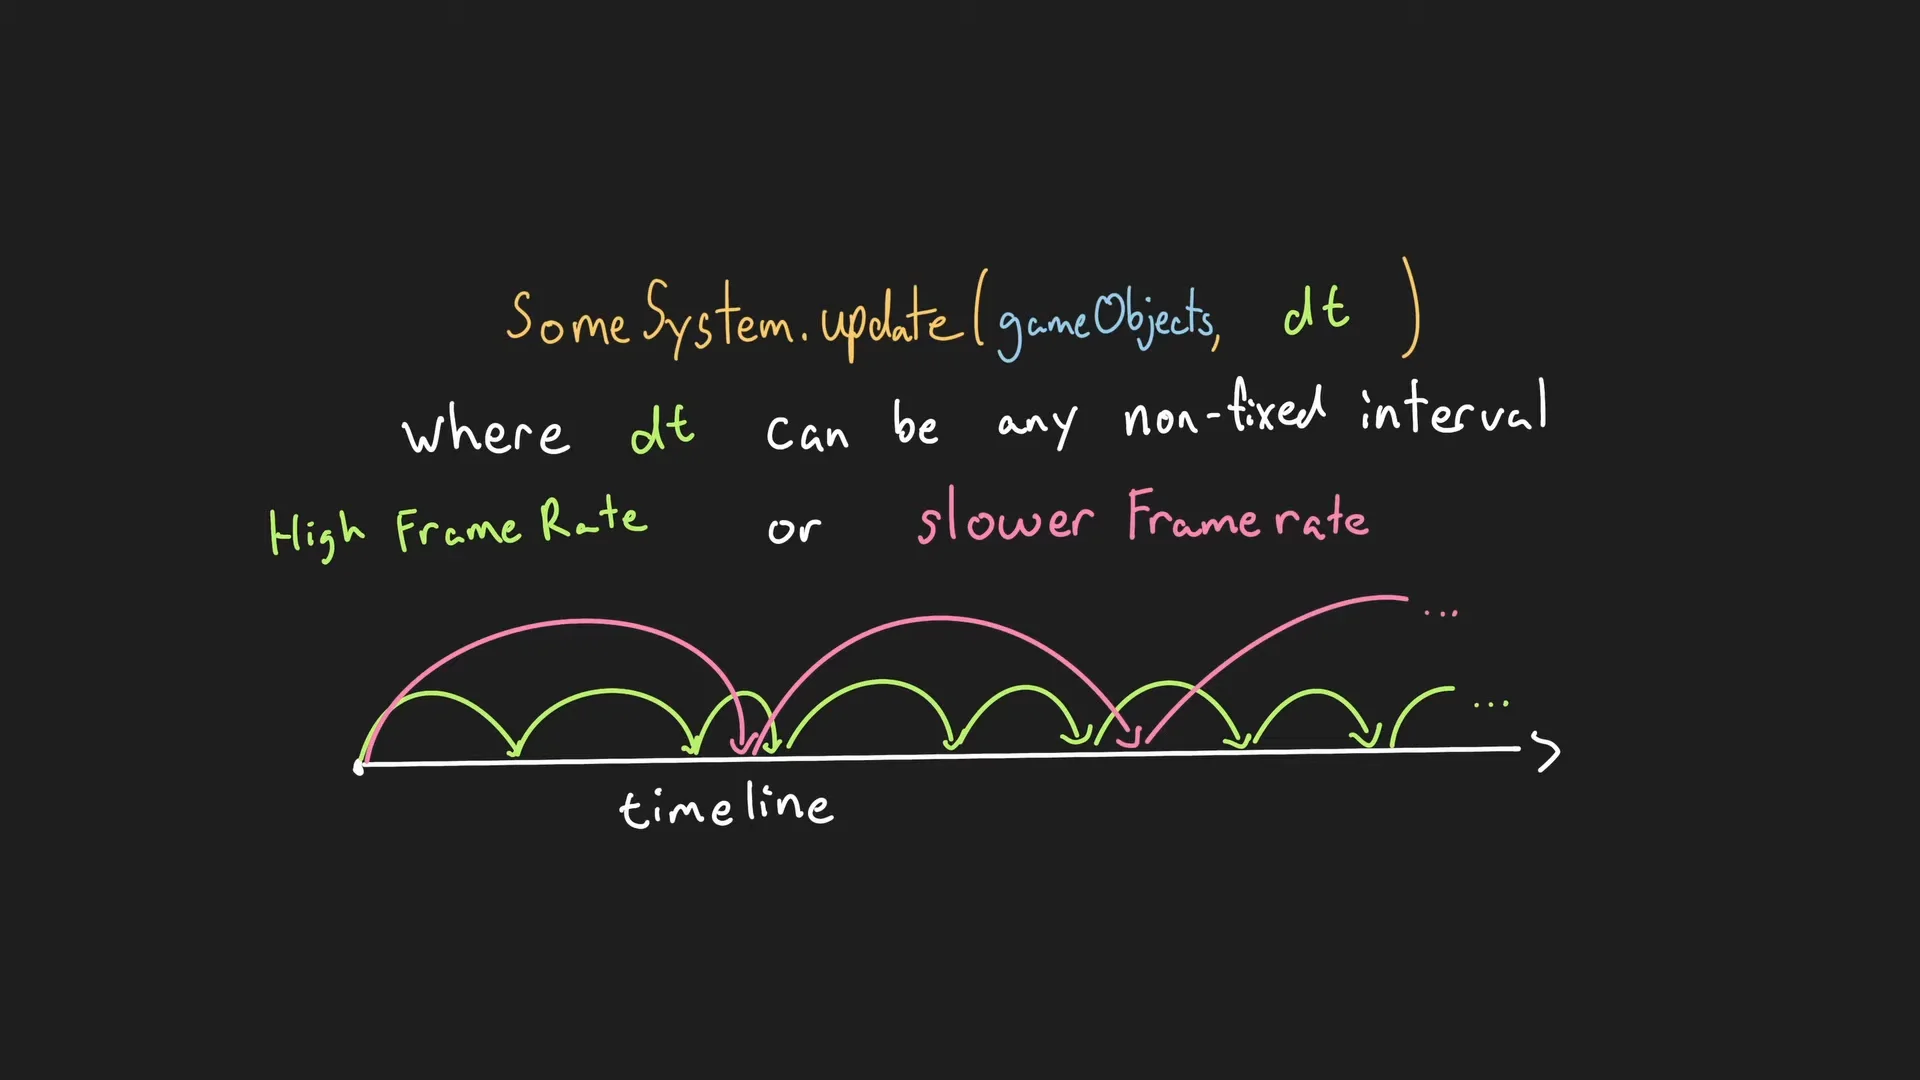 SomeSystem.update(gameObjects, dt )
where dt can be any non-fixed interval
High Frame Rate or slower Frame rate
...
...
timeline